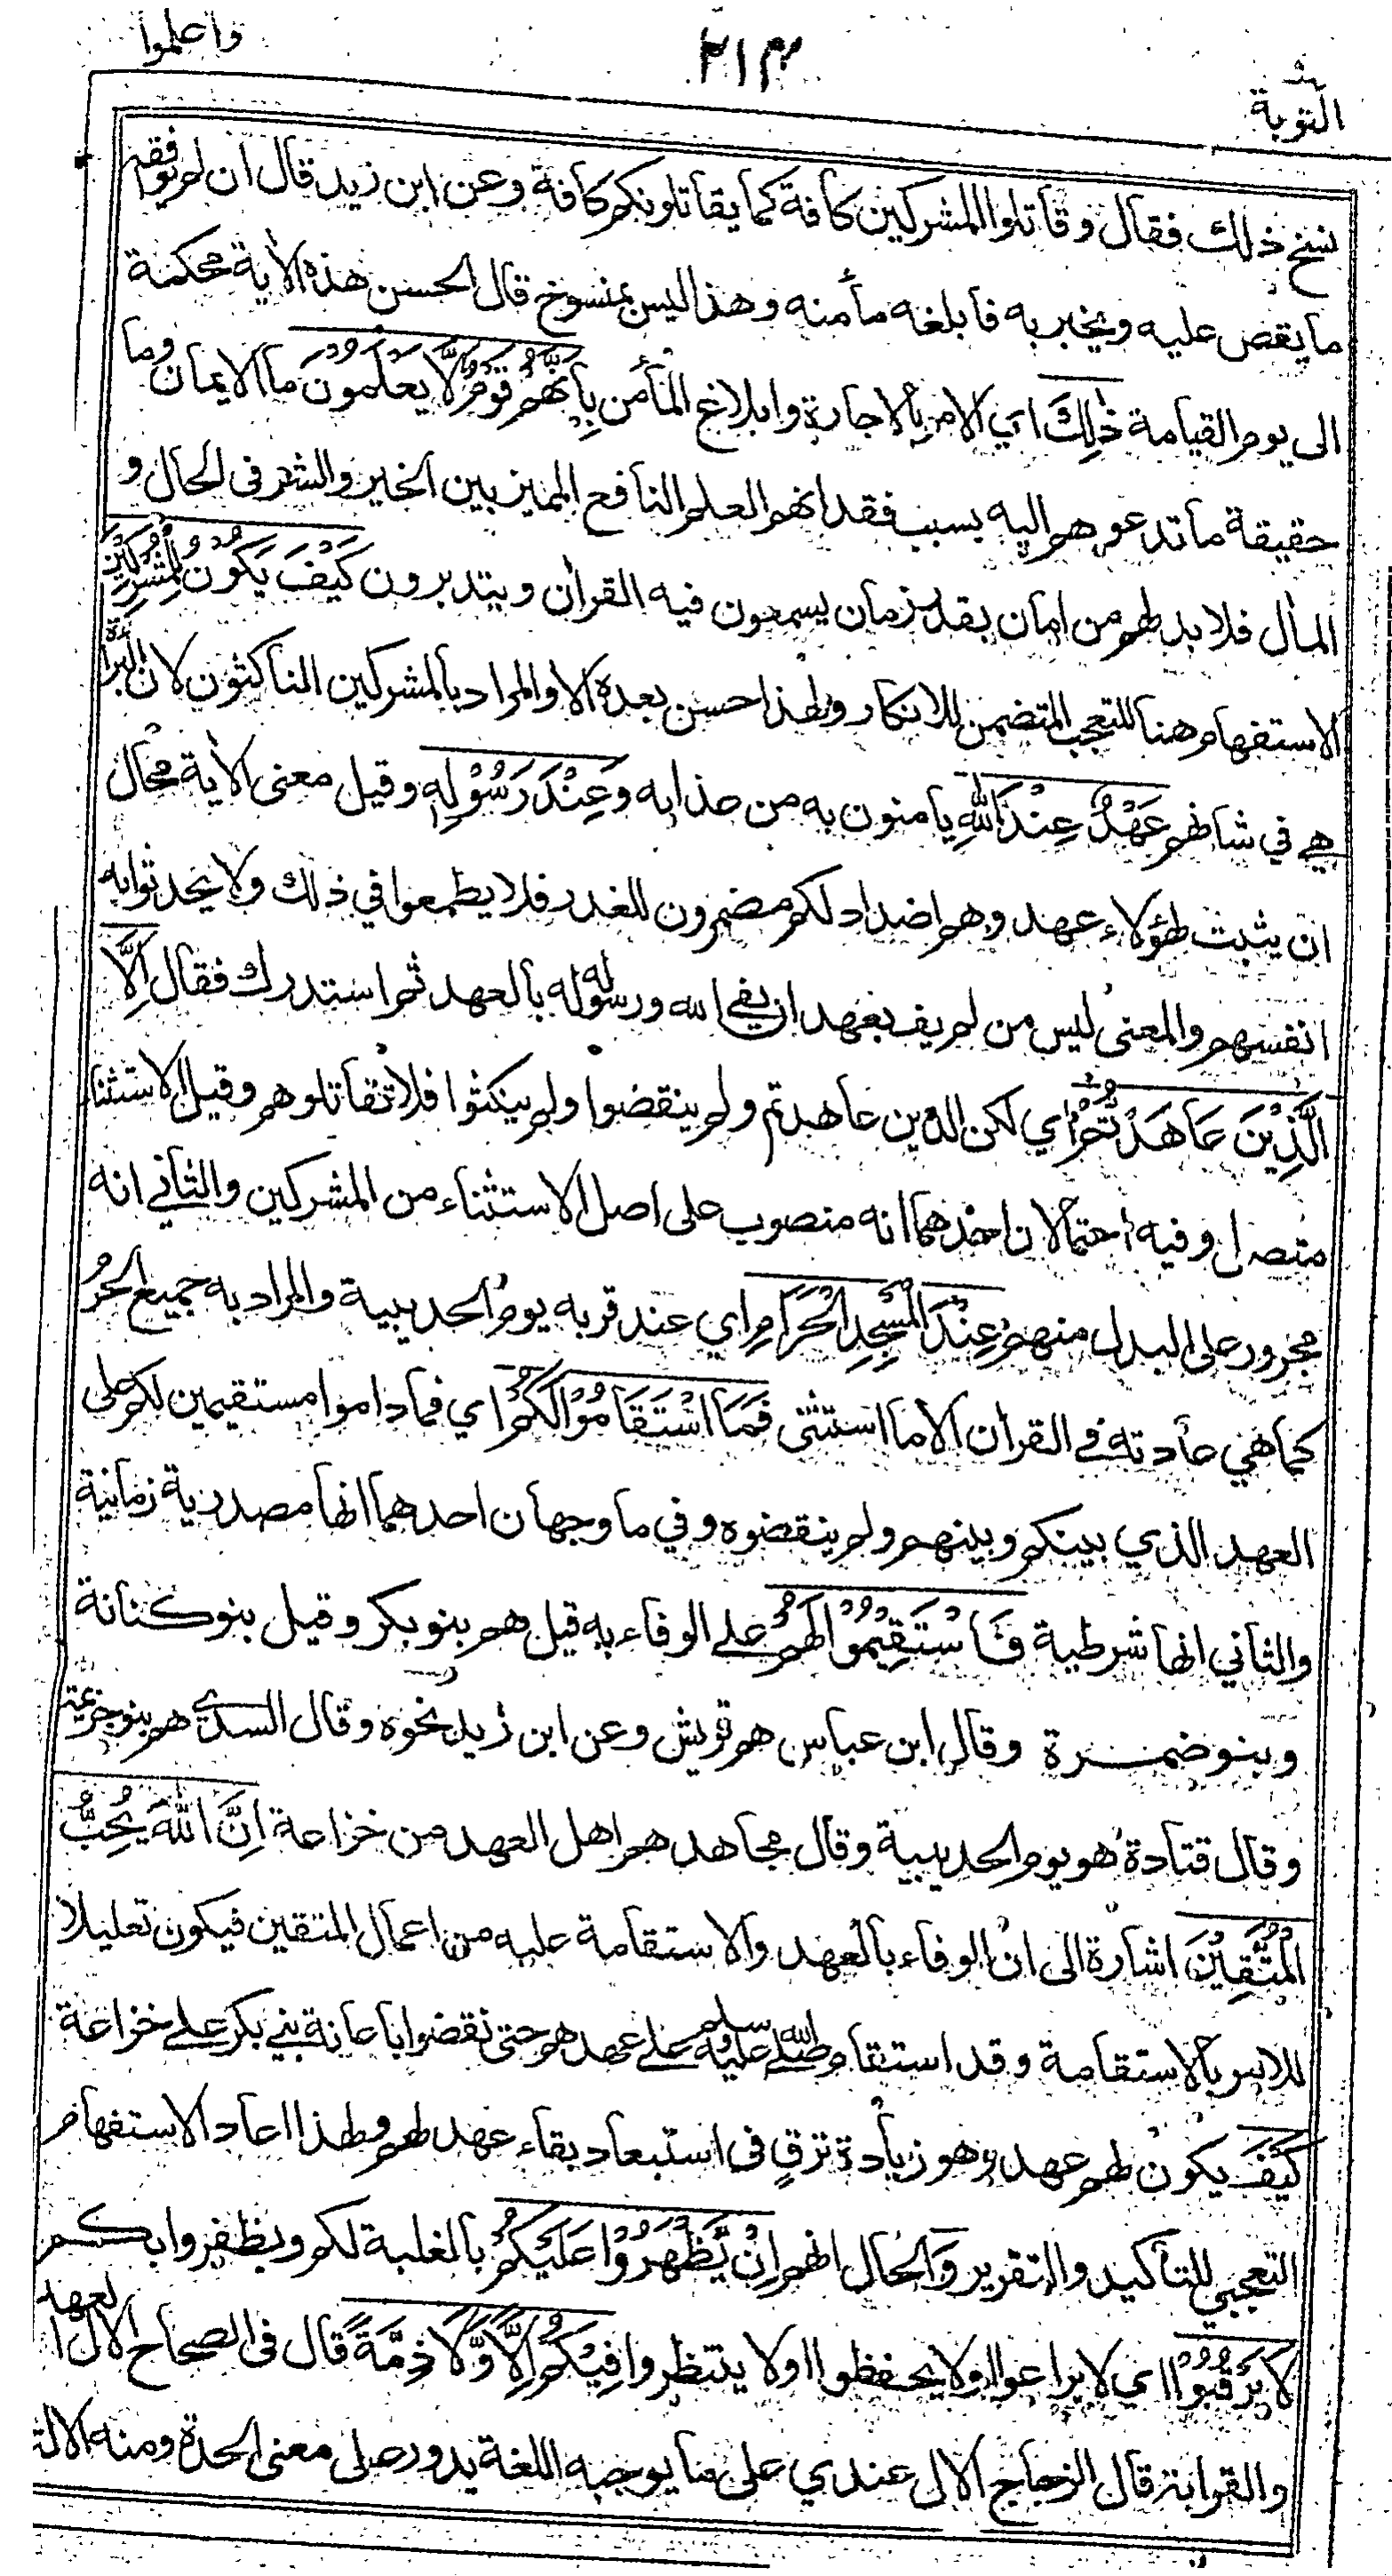 واعلموا
٢١٣
التوبة
نسخ ذلك فقال وقاتلوا المشركين كافة كما يقاتلونكم كافة وعن ابن زيد قال ان لم يوافقه
ما يقص عليه ويخبر به فابلغه مأمنه وهذا ليس بمنسوخ قال الحسن هذه الأية محكمة
الى يوم القيامة ذٰلِكَ اي الامر بالاجارة وابلاغ المأمن بِاَنَّهُمْ قَوْمٌ لَّا يَعْلَمُوْنَ ما الايمان وما
حقيقة ما تدعوهم اليه بسبب فقدانهم العلم النافع المميز بين الخير والشر في الحال و
المأل فلا بد لهم من امان بقدر زمان يسمعون فيه القرأن ويتدبرون كَيْفَ يَكُوْنُ لِلْمُشْرِكِيْنَ
الاستفهام هنا للتعجب المتضمن للانكار ولهذا حسن بعده الا والمراد بالمشركين الناكثون لان البراءة
هي في شانهم عَهْدٌ عِنْدَ اللهِ يامنون به من عذابه وَعِنْدَ رَسُوْلِهٖ وقيل معنى الأية محال
ان يثبت لهؤلاء عهد وهم اضداد لكم مضمرون للغدر فلا يطمعوا في ذلك ولا يحدثوا به
انفسهم والمعنى ليس من لم يف بعهد ان يفي الله ورسوله له بالعهد ثم استدرك فقال اِلَّا
الَّذِيْنَ عَاهَدْتُّمْ اي لكن الذين عاهدتم ولم ينقضوا ولم ينكثوا فلا تقاتلوهم وقيل الاستثناء
متصل وفيه احتمالان احدهما انه منصوب على اصل الاستثناء من المشركين والثاني انه
مجرور على البدل منهم عِنْدَ الْمَسْجِدِ الْحَرَامِ اي عند قربه يوم الحديبية والمراد به جميع الحرم
كما هي عادته في القرأن الا ما استثنى فَمَا اسْتَقَامُوْا لَكُمْ اي فما داموا مستقيمين لكم على
العهد الذي بينكم وبينهم ولم ينقضوه وفي ما وجهان احدهما انها مصدرية زمانية
والثاني انها شرطية فَاسْتَقِيْمُوْا لَهُمْ على الوفاء به قيل هم بنو بكر وقيل بنو كنانة
وبنو ضمرة وقال ابن عباس هم قريش وعن ابن زيد نحوه وقال السدي هم بنو جزيمة
وقال قتادة هو يوم الحديبية وقال مجاهد هم اهل العهد من خزاعة اِنَّ اللهَ يُحِبُّ
الْمُتَّقِيْنَ اشارة الى ان الوفاء بالعهد والاستقامة عليه من اعمال المتقين فيكون تعليلا
للامر بالاستقامة وقد استقام صلى الله عليه وسلم على عهدهم حتى نقضوا باعانة بني بكر على خزاعة
كَيْفَ يكون لهم عهد وهو زيادة ترق في استبعاد بقاء عهد لهم ولهذا اعاد الاستفهام
التعجبي للتأكيد والتقرير وَالحال انهم اِنْ يَّظْهَرُوْا عَلَيْكُمْ بالغلبة لكم ويظفروا بكم
لَا يَرْقُبُوْا اي لا يراعوا ولا يحفظوا ولا ينتظروا فِيْكُمْ اِلًّا وَّلَا ذِمَّةً قال في الصحاح الال العهد
والقرابة قال الزجاج الال عندي على ما يوجبه اللغة يدور على معنى الحدة ومنه